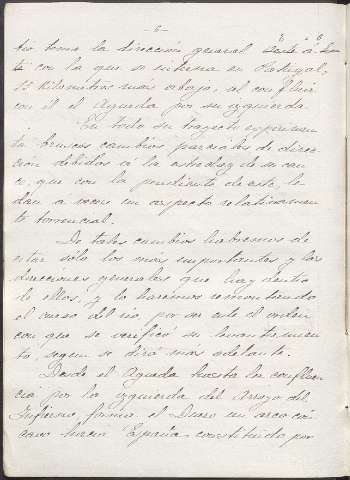 -6-
tio toma la dirección general Este á Oes
te con la que se interna en Portugal,
15 Kilometros más abajo, al confluir
con él el Agueda por su izquierda.
En todo su trayecto experimen
ta bruscos cambios parciales de direc
cion debidos á la estrechez de su cau
ce, que con la pendiente de este, le
dan a veces un aspecto relativamen
te torrencial.
De tales cambios habremos de
citar sólo los más importantes y las
direcciones generales que hay dentro
de ellos, y lo haremos remontiendo
el curso del rio, por ser este el orden
con que se verificó su levantamien
to, segun se dirá más adelante.
Desde el Agueda hasta la confluen
cia por la izquierda del Arroyo del
Infierno, forma el Duero un arco cón
cavo hacia España, constituido por